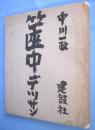 中川一政
篋中デッサン
建設社